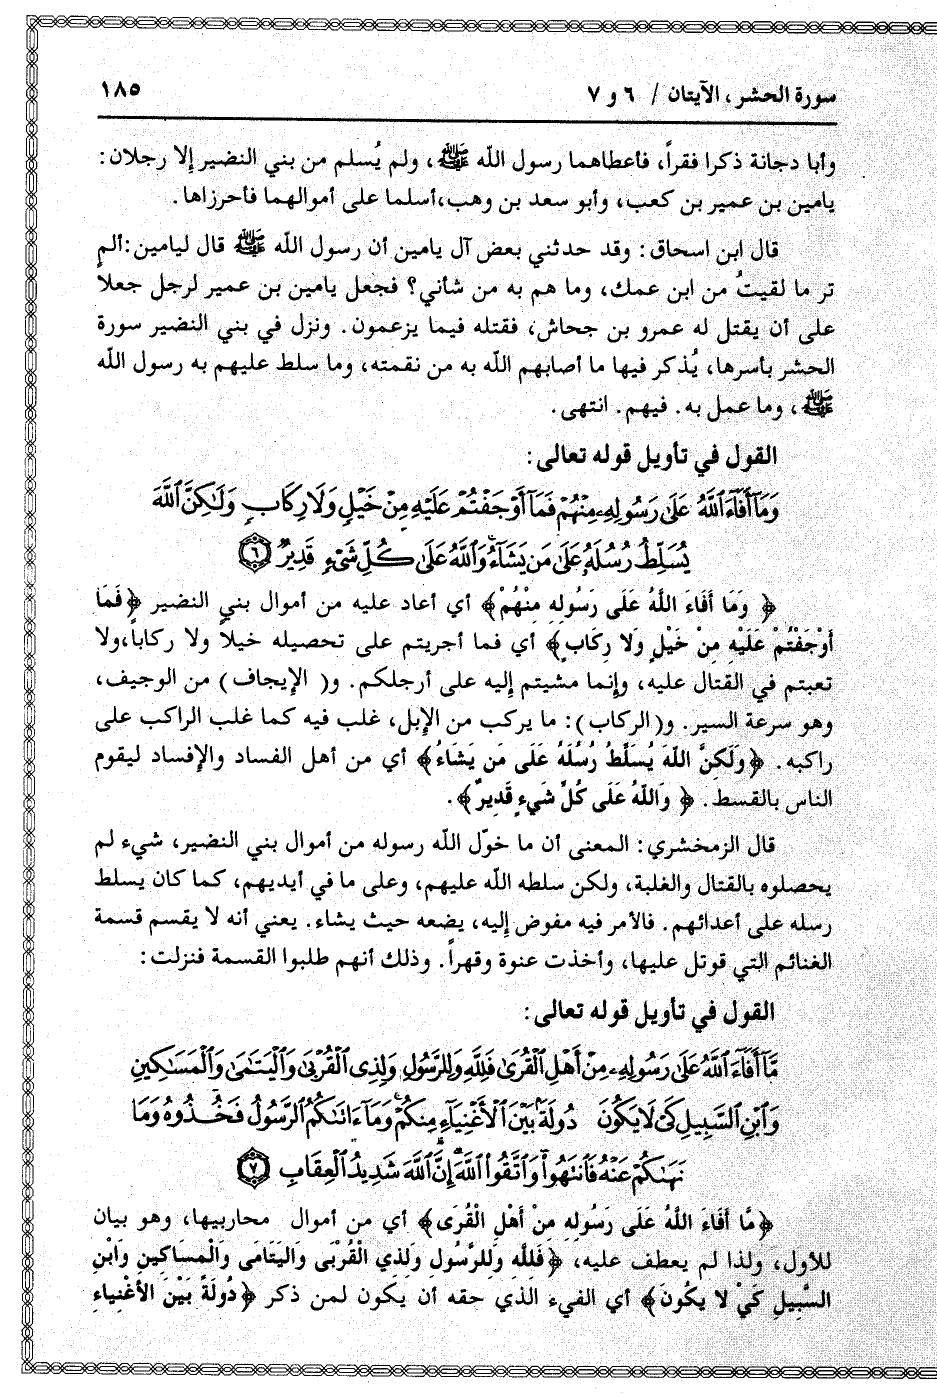 سورة الحشر، الآيتان / ٦ و ٧ ١٨٥
وأبا دجانة ذكرا فقراً، فأعطاهما رسول الله ﷺ، ولم يُسلم من بني النضير إلا رجلان:
يامين بن عمير بن كعب، وأبو سعد بن وهب،أسلما على أموالهما فأحرزاها.
قال ابن اسحاق: وقد حدثني بعض آل يامين أن رسول الله ﷺ قال ليامين:ألم
تر ما لقيتُ من ابن عمك، وما هم به من شأني؟ فجعل يامين بن عمير لرجل جعلاً
على أن يقتل له عمرو بن جحاش، فقتله فيما يزعمون. ونزل في بني النضير سورة
الحشر بأسرها، يُذكر فيها ما أصابهم الله به من نقمته، وما سلط عليهم به رسول الله
ﷺ، وما عمل به. فيهم. انتهى.
القول في تأويل قوله تعالى:
وَمَآ أَفَآءَ ٱللَّهُ عَلَىٰ رَسُولِهِۦ مِنْهُمْ فَمَآ أَوْجَفْتُمْ عَلَيْهِ مِنْ خَيْلٍ وَلَا رِكَابٍ وَلَٰكِنَّ ٱللَّهَ
يُسَلِّطُ رُسُلَهُۥ عَلَىٰ مَن يَشَآءُ وَٱللَّهُ عَلَىٰ كُلِّ شَىْءٍ قَدِيرٌ ٦
﴿ وَمَا أَفَاءَ اللهُ عَلَى رَسُولِهِ مِنْهُمْ﴾ أي أعاد عليه من أموال بني النضير ﴿فَمَا
أَوْجَفْتُمْ عَلَيْهِ مِنْ خَيْلٍ وَلا رِكَابٍ﴾ أي فما أجريتم على تحصيله خيلاً ولا ركاباً،ولا
تعبتم في القتال عليه، وإنما مشيتم إليه على أرجلكم. و( الإيجاف) من الوجيف،
وهو سرعة السير. و(الركاب): ما يركب من الإبل، غلب فيه كما غلب الراكب على
راكبه. ﴿وَلَكِنَّ اللهَ يُسَلِّطُ رُسُلَهُ عَلَى مَن يَشَاءُ﴾ أي من أهل الفساد والإفساد ليقوم
الناس بالقسط. ﴿ وَاللهُ عَلَى كُلِّ شَيءٍ قَدِيرٌ﴾.
قال الزمخشري: المعنى أن ما خوّل الله رسوله من أموال بني النضير، شيء لم
يحصلوه بالقتال والغلبة، ولكن سلطه الله عليهم، وعلى ما في أيديهم، كما كان يسلط
رسله على أعدائهم. فالأمر فيه مفوض إليه، يضعه حيث يشاء. يعني أنه لا يقسم قسمة
الغنائم التي قوتل عليها، وأخذت عنوة وقهراً. وذلك أنهم طلبوا القسمة فنزلت:
القول في تأويل قوله تعالى:
مَّآ أَفَآءَ ٱللَّهُ عَلَىٰ رَسُولِهِۦ مِنْ أَهْلِ ٱلْقُرَىٰ فَلِلَّهِ وَلِلرَّسُولِ وَلِذِى ٱلْقُرْبَىٰ وَٱلْيَتَٰمَىٰ وَٱلْمَسَٰكِينِ
وَٱبْنِ ٱلسَّبِيلِ كَىْ لَا يَكُونَ دُولَةًۢ بَيْنَ ٱلْأَغْنِيَآءِ مِنكُمْ وَمَآ ءَاتَىٰكُمُ ٱلرَّسُولُ فَخُذُوهُ وَمَا
نَهَىٰكُمْ عَنْهُ فَٱنتَهُوا۟ وَٱتَّقُوا۟ ٱللَّهَ إِنَّ ٱللَّهَ شَدِيدُ ٱلْعِقَابِ ٧
﴿مَّا أَفَاءَ اللهُ عَلَى رَسُولِهِ مِنْ أَهْلِ الْقُرَى﴾ أي من أموال محاربيها، وهو بيان
للأول، ولذا لم يعطف عليه، ﴿فَلِلَّهِ وَلِلرَّسُولِ وَلِذِي الْقُرْبَى وَالْيَتَامَى وَالْمَسَاكِينِ وَابْنِ
السَّبِيلِ كَيْ لا يَكُونَ﴾ أي الفيء الذي حقه أن يكون لمن ذكر ﴿دُولَةً بَيْنَ الأَغْنِيَاءِ